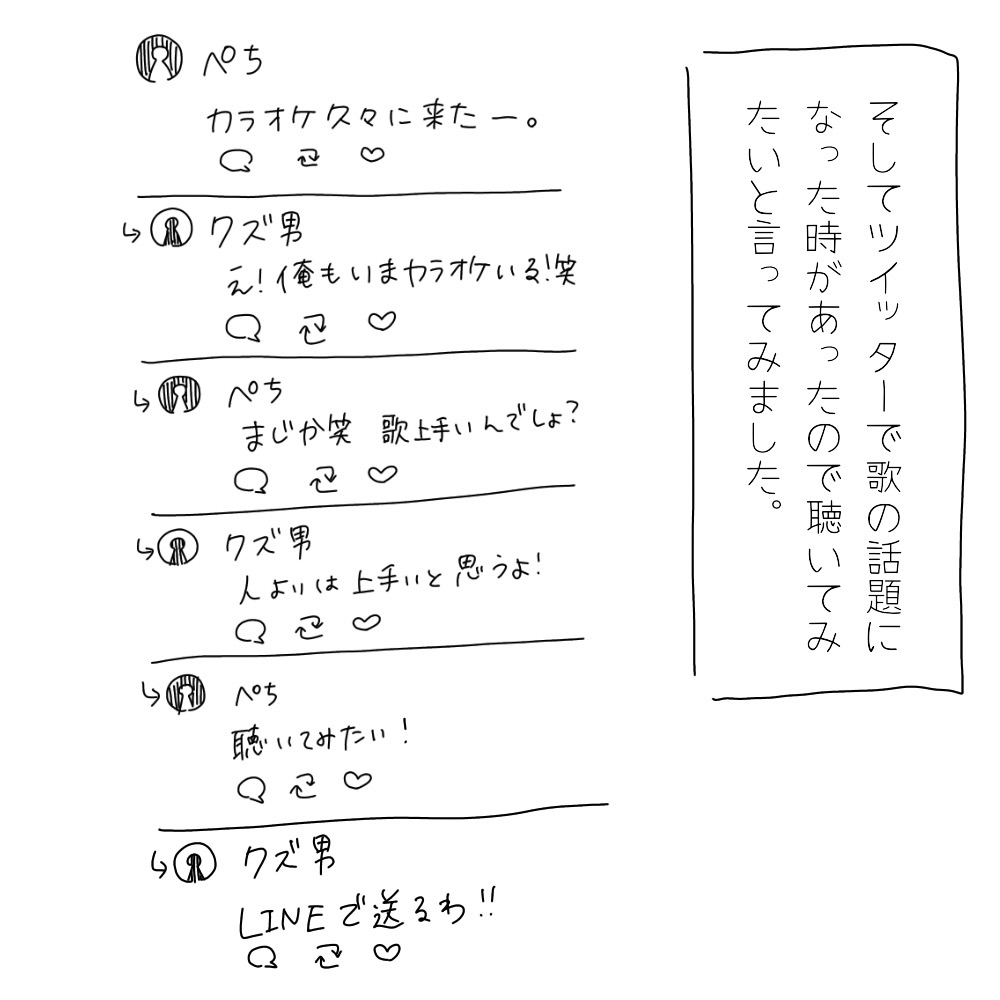 そしてツイッターで歌の話題に
なった時があったので聴いてみ
たいと言ってみました。
ぺち
カラオケ久々に来たー。
クズ男
え!俺もいまカラオケいる!笑
ぺち
まじか笑 歌上手いんでしょ?
クズ男
人よりは上手いと思うよ!
ぺち
聴いてみたい!
クズ男
LINEで送るわ!!